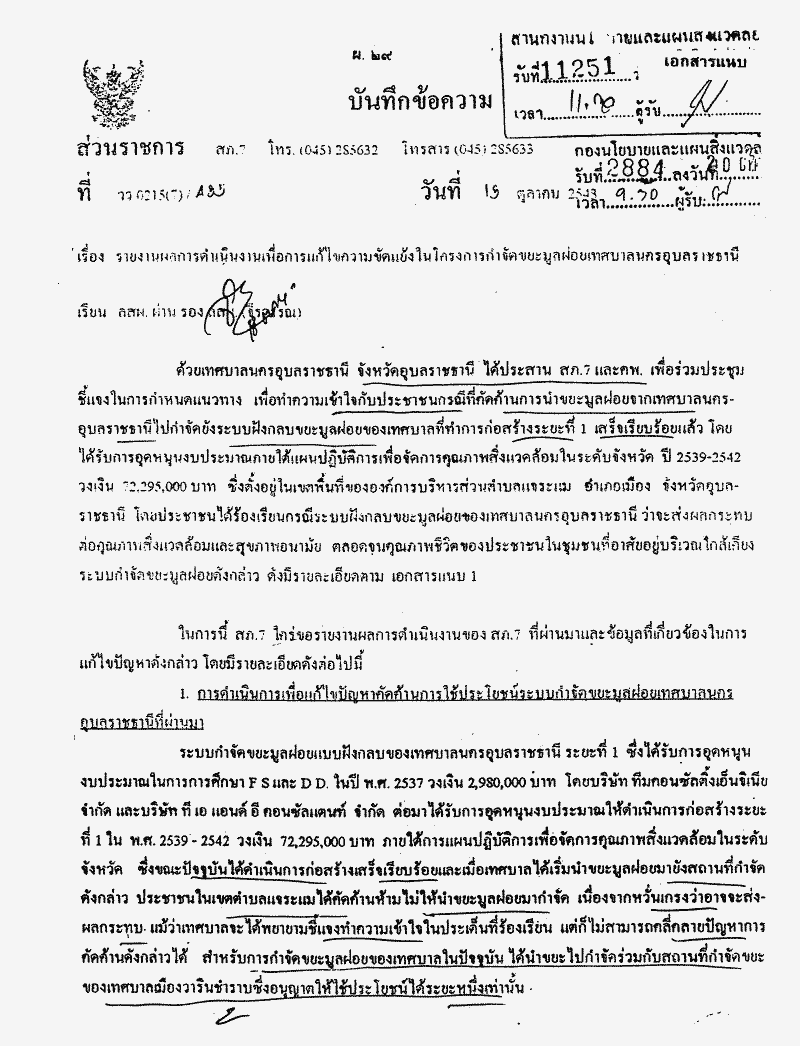 ผ. ๒๙
บันทึกข้อความ
เอกสารแนบ
รับที่ 11251
เวลา 11.00 ผู้รับ
ส่วนราชการ สภ.7 โทร. (045) 285632 โทรสาร (045) 285633
กองนโยบายและแผนสิ่งแวดล
รับที่ 2884 ลงวันที่ 20
เวลา 9.30 ผู้รับ
ที่ วว 0215(7) / วันที่ ตุลาคม 2543
เรื่อง รายงานผลการดำเนินงานเพื่อการแก้ไขความขัดแย้งในโครงการกำจัดขยะมูลฝอยเทศบาลนครอุบลราชธานี
เรียน ลสผ. ผ่าน รอง
ด้วยเทศบาลนครอุบลราชธานี จังหวัดอุบลราชธานี ได้ประสาน สภ.7 และคพ. เพื่อร่วมประชุม
ชี้แจงในการกำหนดแนวทาง เพื่อทำความเข้าใจกับประชาชนกรณีที่คัดค้านการนำขยะมูลฝอยจากเทศบาลนคร-
อุบลราชธานีไปกำจัดยังระบบฝังกลบขยะมูลฝอยของเทศบาลที่ทำการก่อสร้างระยะที่ 1 เสร็จเรียบร้อยแล้ว โดย
ได้รับการอุดหนุนงบประมาณภายใต้แผนปฏิบัติการเพื่อจัดการคุณภาพสิ่งแวดล้อมในระดับจังหวัด ปี 2539-2542
วงเงิน 72,295,000 บาท ซึ่งตั้งอยู่ในเขตพื้นที่ขององค์การบริหารส่วนตำบลแจระแม อำเภอเมือง จังหวัดอุบล-
ราชธานี โดยประชาชนได้ร้องเรียนกรณีระบบฝังกลบขยะมูลฝอยของเทศบาลนครอุบลราชธานี ว่าจะส่งผลกระทบ
ต่อคุณภาพสิ่งแวดล้อมและสุขภาพอนามัย ตลอดจนคุณภาพชีวิตของประชาชนในชุมชนที่อาศัยอยู่บริเวณใกล้เคียง
ระบบกำจัดขยะมูลฝอยดังกล่าว ดังมีรายละเอียดตาม เอกสารแนบ 1
ในการนี้ สภ.7 ใคร่ขอรายงานผลการดำเนินงานของ สภ.7 ที่ผ่านมาและข้อมูลที่เกี่ยวข้องในการ
แก้ไขปัญหาดังกล่าว โดยมีรายละเอียดดังต่อไปนี้
1. การดำเนินการเพื่อแก้ไขปัญหาคัดค้านการใช้ประโยชน์ระบบกำจัดขยะมูลฝอยเทศบาลนคร
อุบลราชธานีที่ผ่านมา
ระบบกำจัดขยะมูลฝอยแบบฝังกลบของเทศบาลนครอุบลราชธานี ระยะที่ 1 ซึ่งได้รับการอุดหนุน
งบประมาณในการการศึกษา F S และ D D. ในปี พ.ศ. 2537 วงเงิน 2,980,000 บาท โดยบริษัท ทีมคอนซัลติ้งเอ็นจิเนีย
จำกัด และบริษัท ที เอ แอนด์ อี คอนซัลแตนท์ จำกัด ต่อมาได้รับการอุดหนุนงบประมาณให้ดำเนินการก่อสร้างระยะ
ที่ 1 ใน พ.ศ. 2539 - 2542 วงเงิน 72,295,000 บาท ภายใต้การแผนปฏิบัติการเพื่อจัดการคุณภาพสิ่งแวดล้อมในระดับ
จังหวัด ซึ่งขณะปัจจุบันได้ดำเนินการก่อสร้างเสร็จเรียบร้อยและเมื่อเทศบาลได้เริ่มนำขยะมูลฝอยมายังสถานที่กำจัด
ดังกล่าว ประชาชนในเขตตำบลแจระแมได้คัดค้านห้ามไม่ให้นำขยะมูลฝอยมากำจัด เนื่องจากหวั่นเกรงว่าอาจจะส่ง-
ผลกระทบ แม้ว่าเทศบาลจะได้พยายามชี้แจงทำความเข้าใจในประเด็นที่ร้องเรียน แต่ก็ไม่สามารถคลี่คลายปัญหาการ
คัดค้านดังกล่าวได้ สำหรับการกำจัดขยะมูลฝอยของเทศบาลในปัจจุบัน ได้นำขยะไปกำจัดร่วมกับสถานที่กำจัดขยะ
ของเทศบาลเมืองวารินชำราบซึ่งอนุญาตให้ใช้ประโยชน์ได้ระยะหนึ่งเท่านั้น